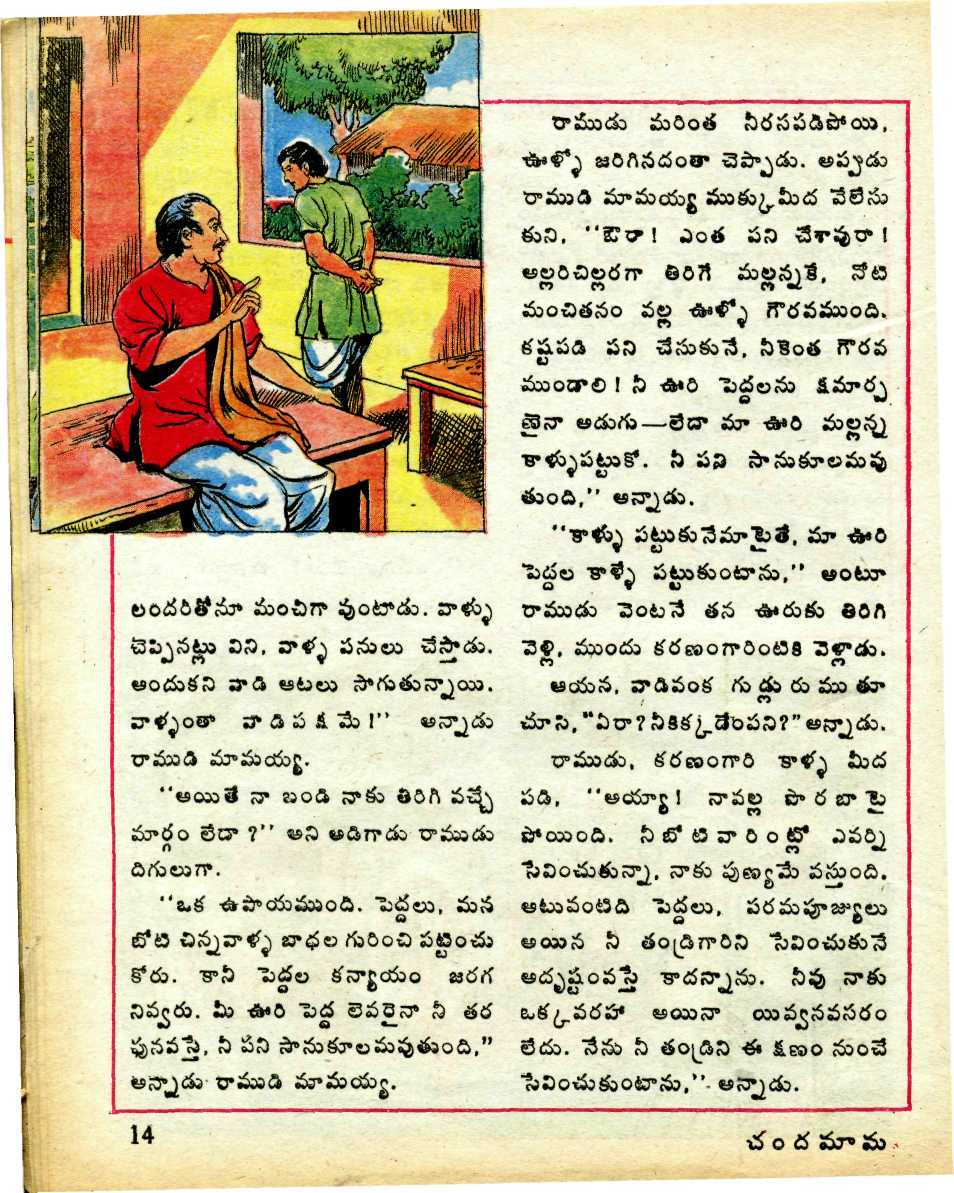 లందరితోనూ మంచిగా వుంటాడు. వాళ్ళు
చెప్పినట్లు విని, వాళ్ళ పనులు చేస్తాడు.
అందుకని వాడి ఆటలు సాగుతున్నాయి.
వాళ్ళంతా వాడి పక్షమే!'' అన్నాడు
రాముడి మామయ్య.
''అయితే నా బండి నాకు తిరిగి వచ్చే
మార్గం లేదా ?'' అని అడిగాడు రాముడు
దిగులుగా.
''ఒక ఉపాయముంది. పెద్దలు, మన
బోటి చిన్నవాళ్ళ బాధల గురించి పట్టించు
కోరు. కానీ పెద్దల కన్యాయం జరగ
నివ్వరు. మీ ఊరి పెద్ద లెవరైనా నీ తర
ఫునవస్తే, నీ పని సానుకూలమవుతుంది,''
అన్నాడు రాముడి మామయ్య.
రాముడు మరింత నీరసపడిపోయి,
ఊళ్ళో జరిగినదంతా చెప్పాడు. అప్పుడు
రాముడి మామయ్య ముక్కుమీద వేలేసు
కుని, ''ఔరా ! ఎంత పని చేశావురా !
అల్లరిచిల్లరగా తిరిగే మల్లన్నకే, నోటి
మంచితనం వల్ల ఊళ్ళో గౌరవముంది.
కష్టపడి పని చేసుకునే, నీకెంత గౌరవ
ముండాలి ! నీ ఊరి పెద్దలను క్షమార్ప
ణైనా అడుగు—లేదా మా ఊరి మల్లన్న
కాళ్ళుపట్టుకో. నీ పని సానుకూలమవు
తుంది,'' అన్నాడు.
''కాళ్ళు పట్టుకునేమాటైతే, మా ఊరి
పెద్దల కాళ్ళే పట్టుకుంటాను,'' అంటూ
రాముడు వెంటనే తన ఊరుకు తిరిగి
వెళ్లి, ముందు కరణంగారింటికి వెళ్లాడు.
ఆయన, వాడివంక గుడ్లురుముతూ
చూసి, ''ఏరా? నీకిక్కడేంపని?'' అన్నాడు.
రాముడు, కరణంగారి కాళ్ళ మీద
పడి, ''అయ్యా ! నావల్ల పొరబాటై
పోయింది. నీబోటివారింట్లో ఎవర్ని
సేవించుకున్నా, నాకు పుణ్యమే వస్తుంది.
ఆటువంటిది పెద్దలు, పరమపూజ్యులు
అయిన నీ తండ్రిగారిని సేవించుకునే
అదృష్టంవస్తే కాదన్నాను. నీవు నాకు
ఒక్కవరహా అయినా యివ్వనవసరం
లేదు. నేను నీ తండ్రిని ఈ క్షణం నుంచే
సేవించుకుంటాను,'' అన్నాడు.
14
చందమామ